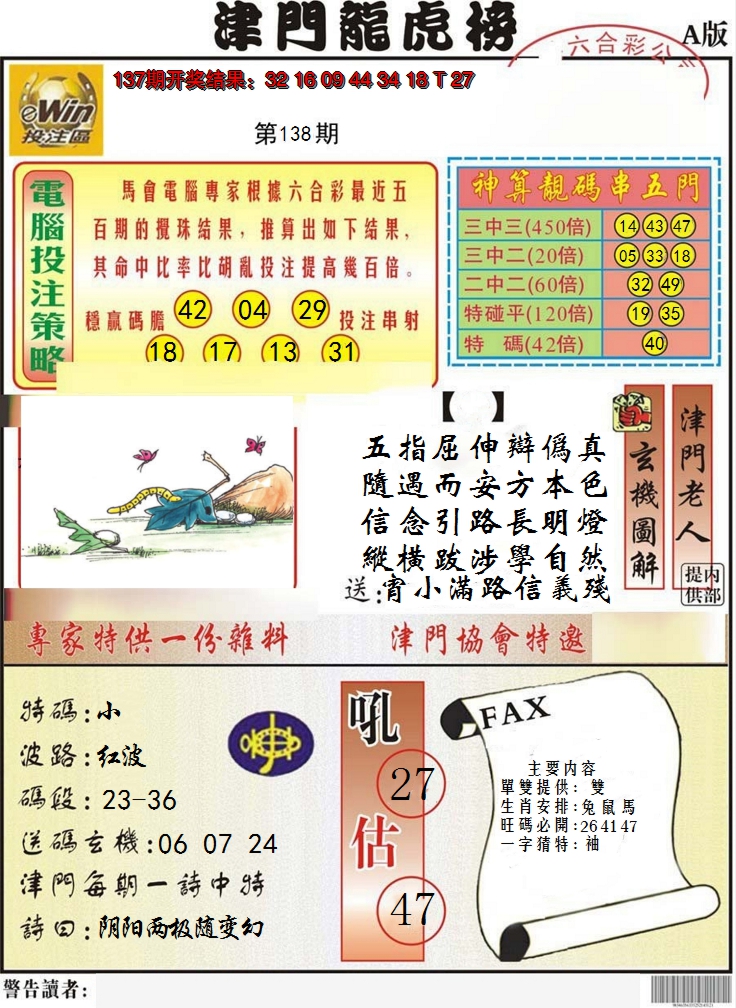 津門龍虎榜
六合彩公
A版
137期开奖结果：32 16 09 44 34 18 T 27
eWin
投注區
第138期
電腦投注策略
馬會電腦專家根據六合彩最近五
百期的攪珠结果，推算出如下结果，
其命中比率比胡亂投注提高幾百倍。
穩赢碼膽 42 04 29 投注串射
18 17 13 31
神算靚碼串五門
三中三(450倍) 14 43 47
三中二(20倍) 05 33 18
二中二(60倍) 32 49
特碰平(120倍) 19 35
特 碼(42倍) 40
【 】
五指屈伸辯僞真
隨遇而安方本色
信念引路長明燈
縱横跋涉學自然
送:宵小滿路信義殘
玄機圖解
津門老人
内部提供
專家特供一份雜料
津門協會特邀
特碼:小
波路:红波
碼段:23-36
送碼玄機:06 07 24
津門每期一詩中特
詩曰:阴阳两极随变幻
吼
27
估
47
FAX
主要内容
單雙提供：雙
生肖安排:兔鼠馬
旺碼必開:26 41 47
一字猜特：袖
警告讀者：